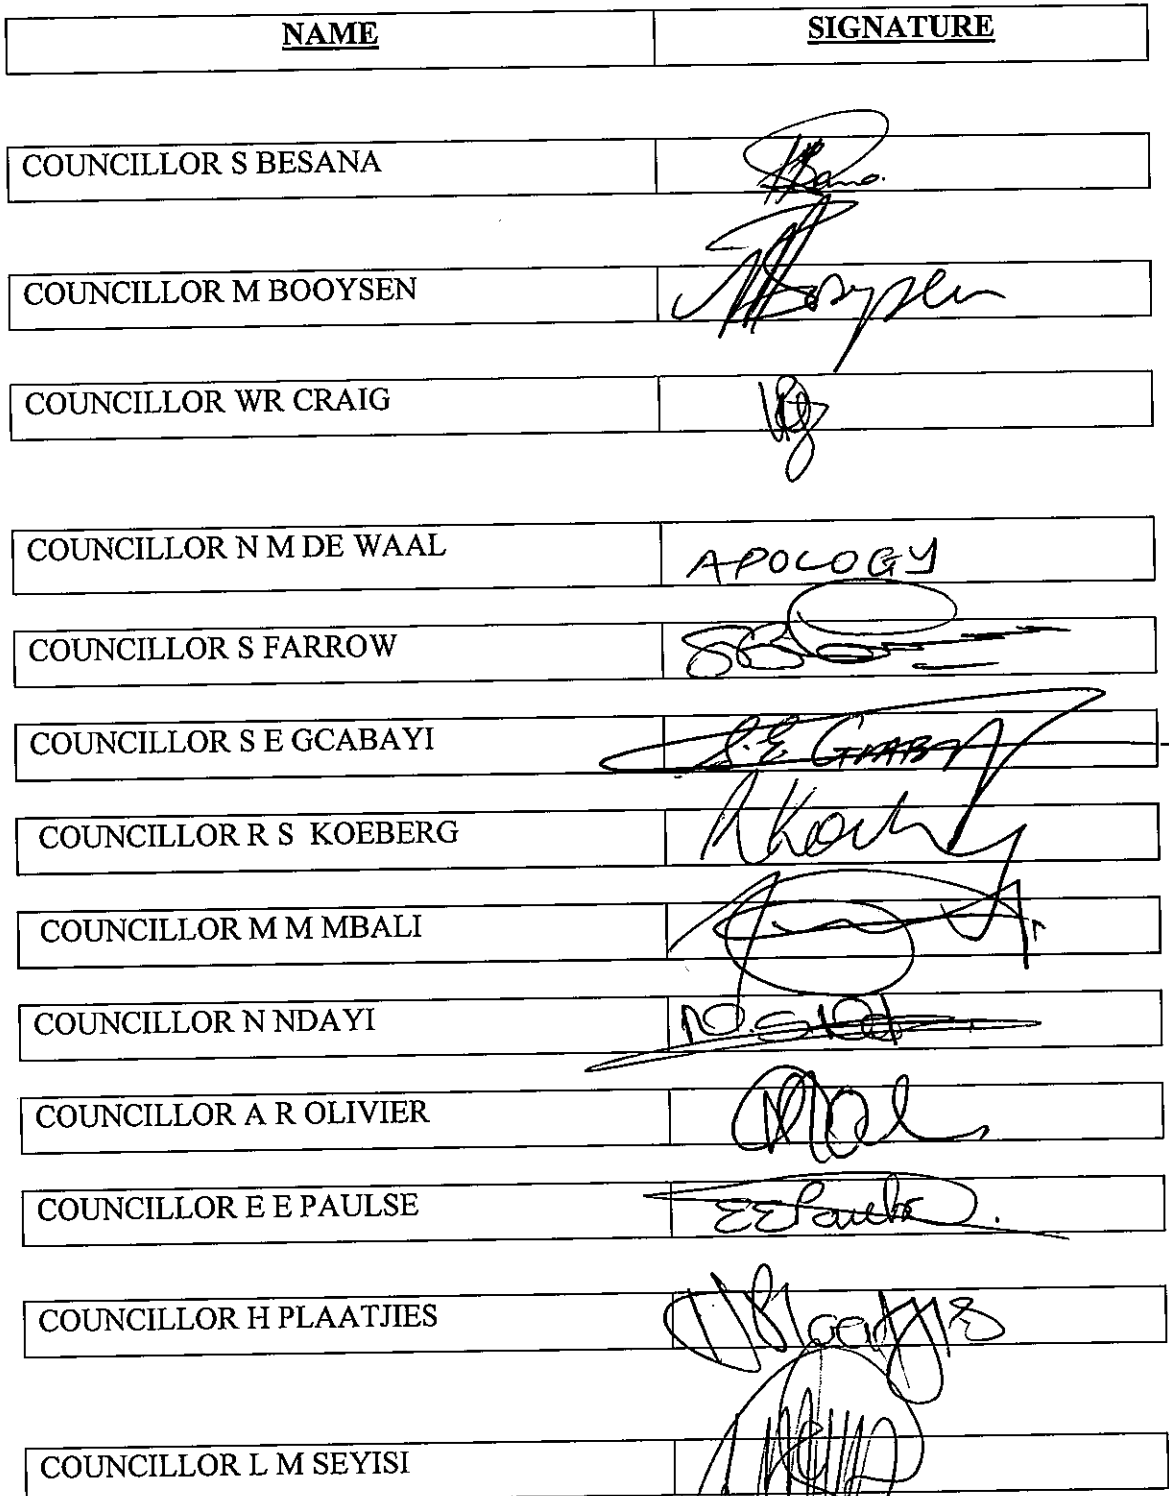 NAME SIGNATURE
COUNCILLOR S BESANA
COUNCILLOR M BOOYSEN Booysen
COUNCILLOR WR CRAIG
COUNCILLOR N M DE WAAL APOLOGY
COUNCILLOR S FARROW
COUNCILLOR S E GCABAYI S.E
COUNCILLOR R S KOEBERG
COUNCILLOR M M MBALI
COUNCILLOR N NDAYI
COUNCILLOR A R OLIVIER
COUNCILLOR E E PAULSE EE Paulse
COUNCILLOR H PLAATJIES H Plaatjies
COUNCILLOR L M SEYISI